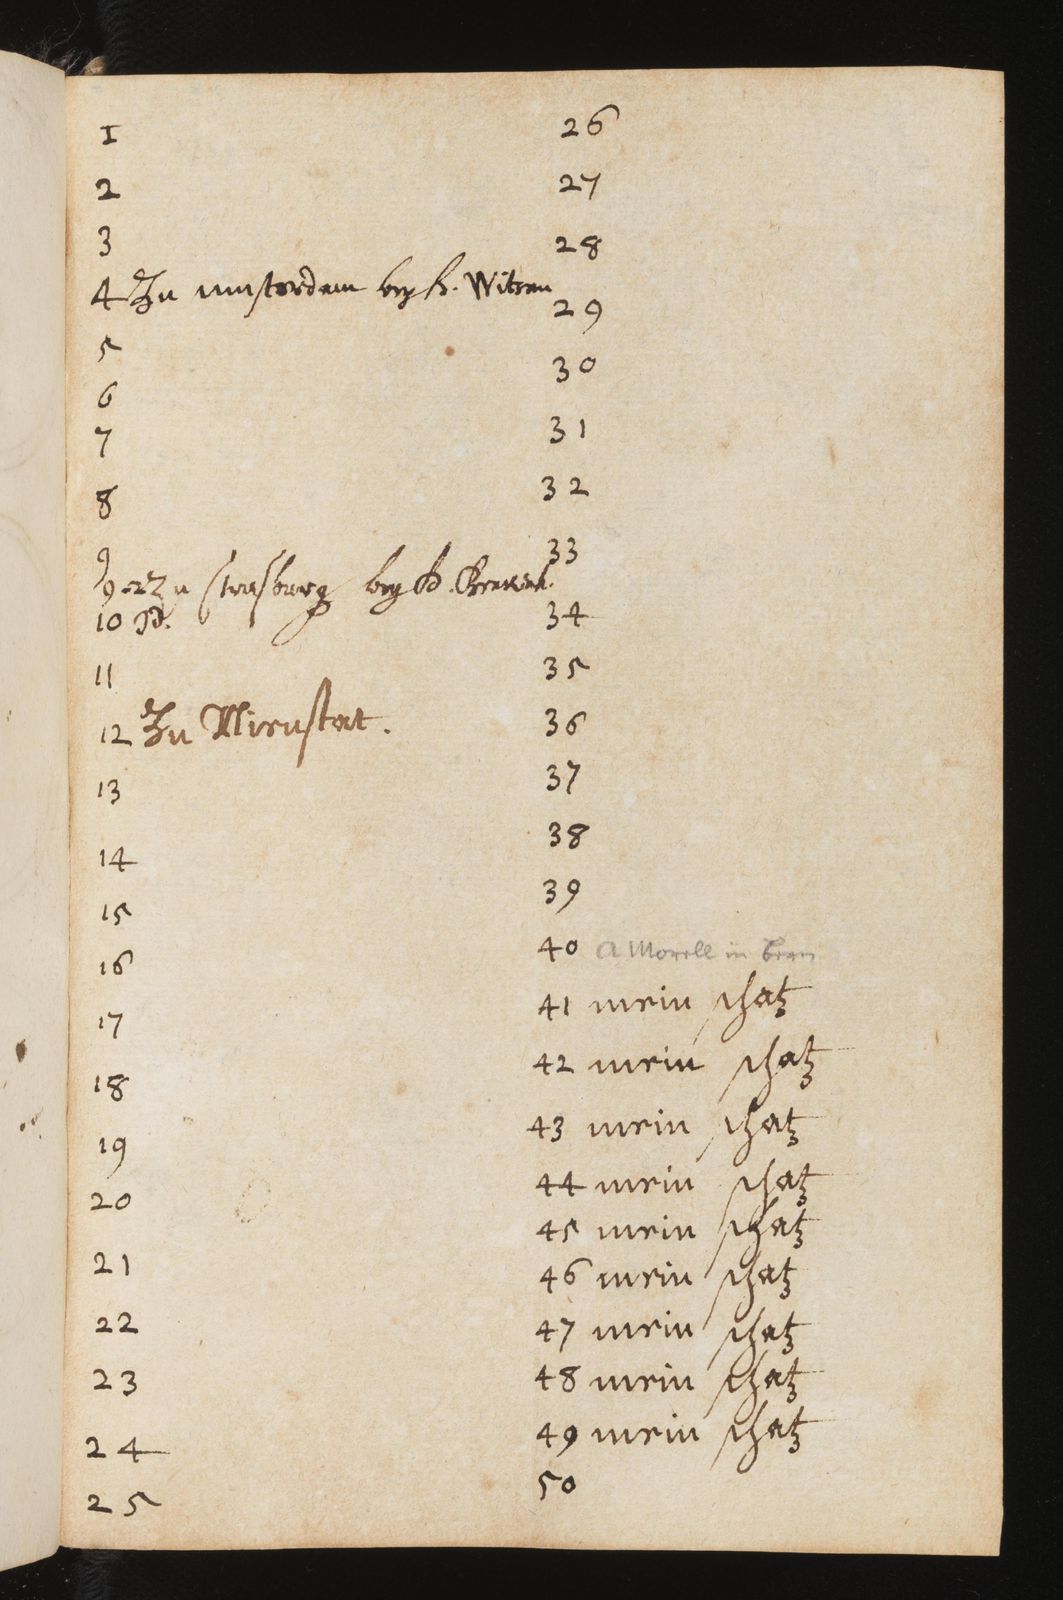 1
2
3
4 Zu amsterdam bey h. Witsen
5
6
7
8
9
9 Zu strasburg bey
10 Id.
11
12 Zu Nienstat.
13
14
15
16
17
18
19
20
21
22
23
24
25
26
27
28
29
30
31
32
33
34
35
36
37
38
39
40 a Morell in bern
41 mein schatz
42 mein schatz
43 mein schatz
44 mein schatz
45 mein schatz
46 mein schatz
47 mein schatz
48 mein schatz
49 mein schatz
50